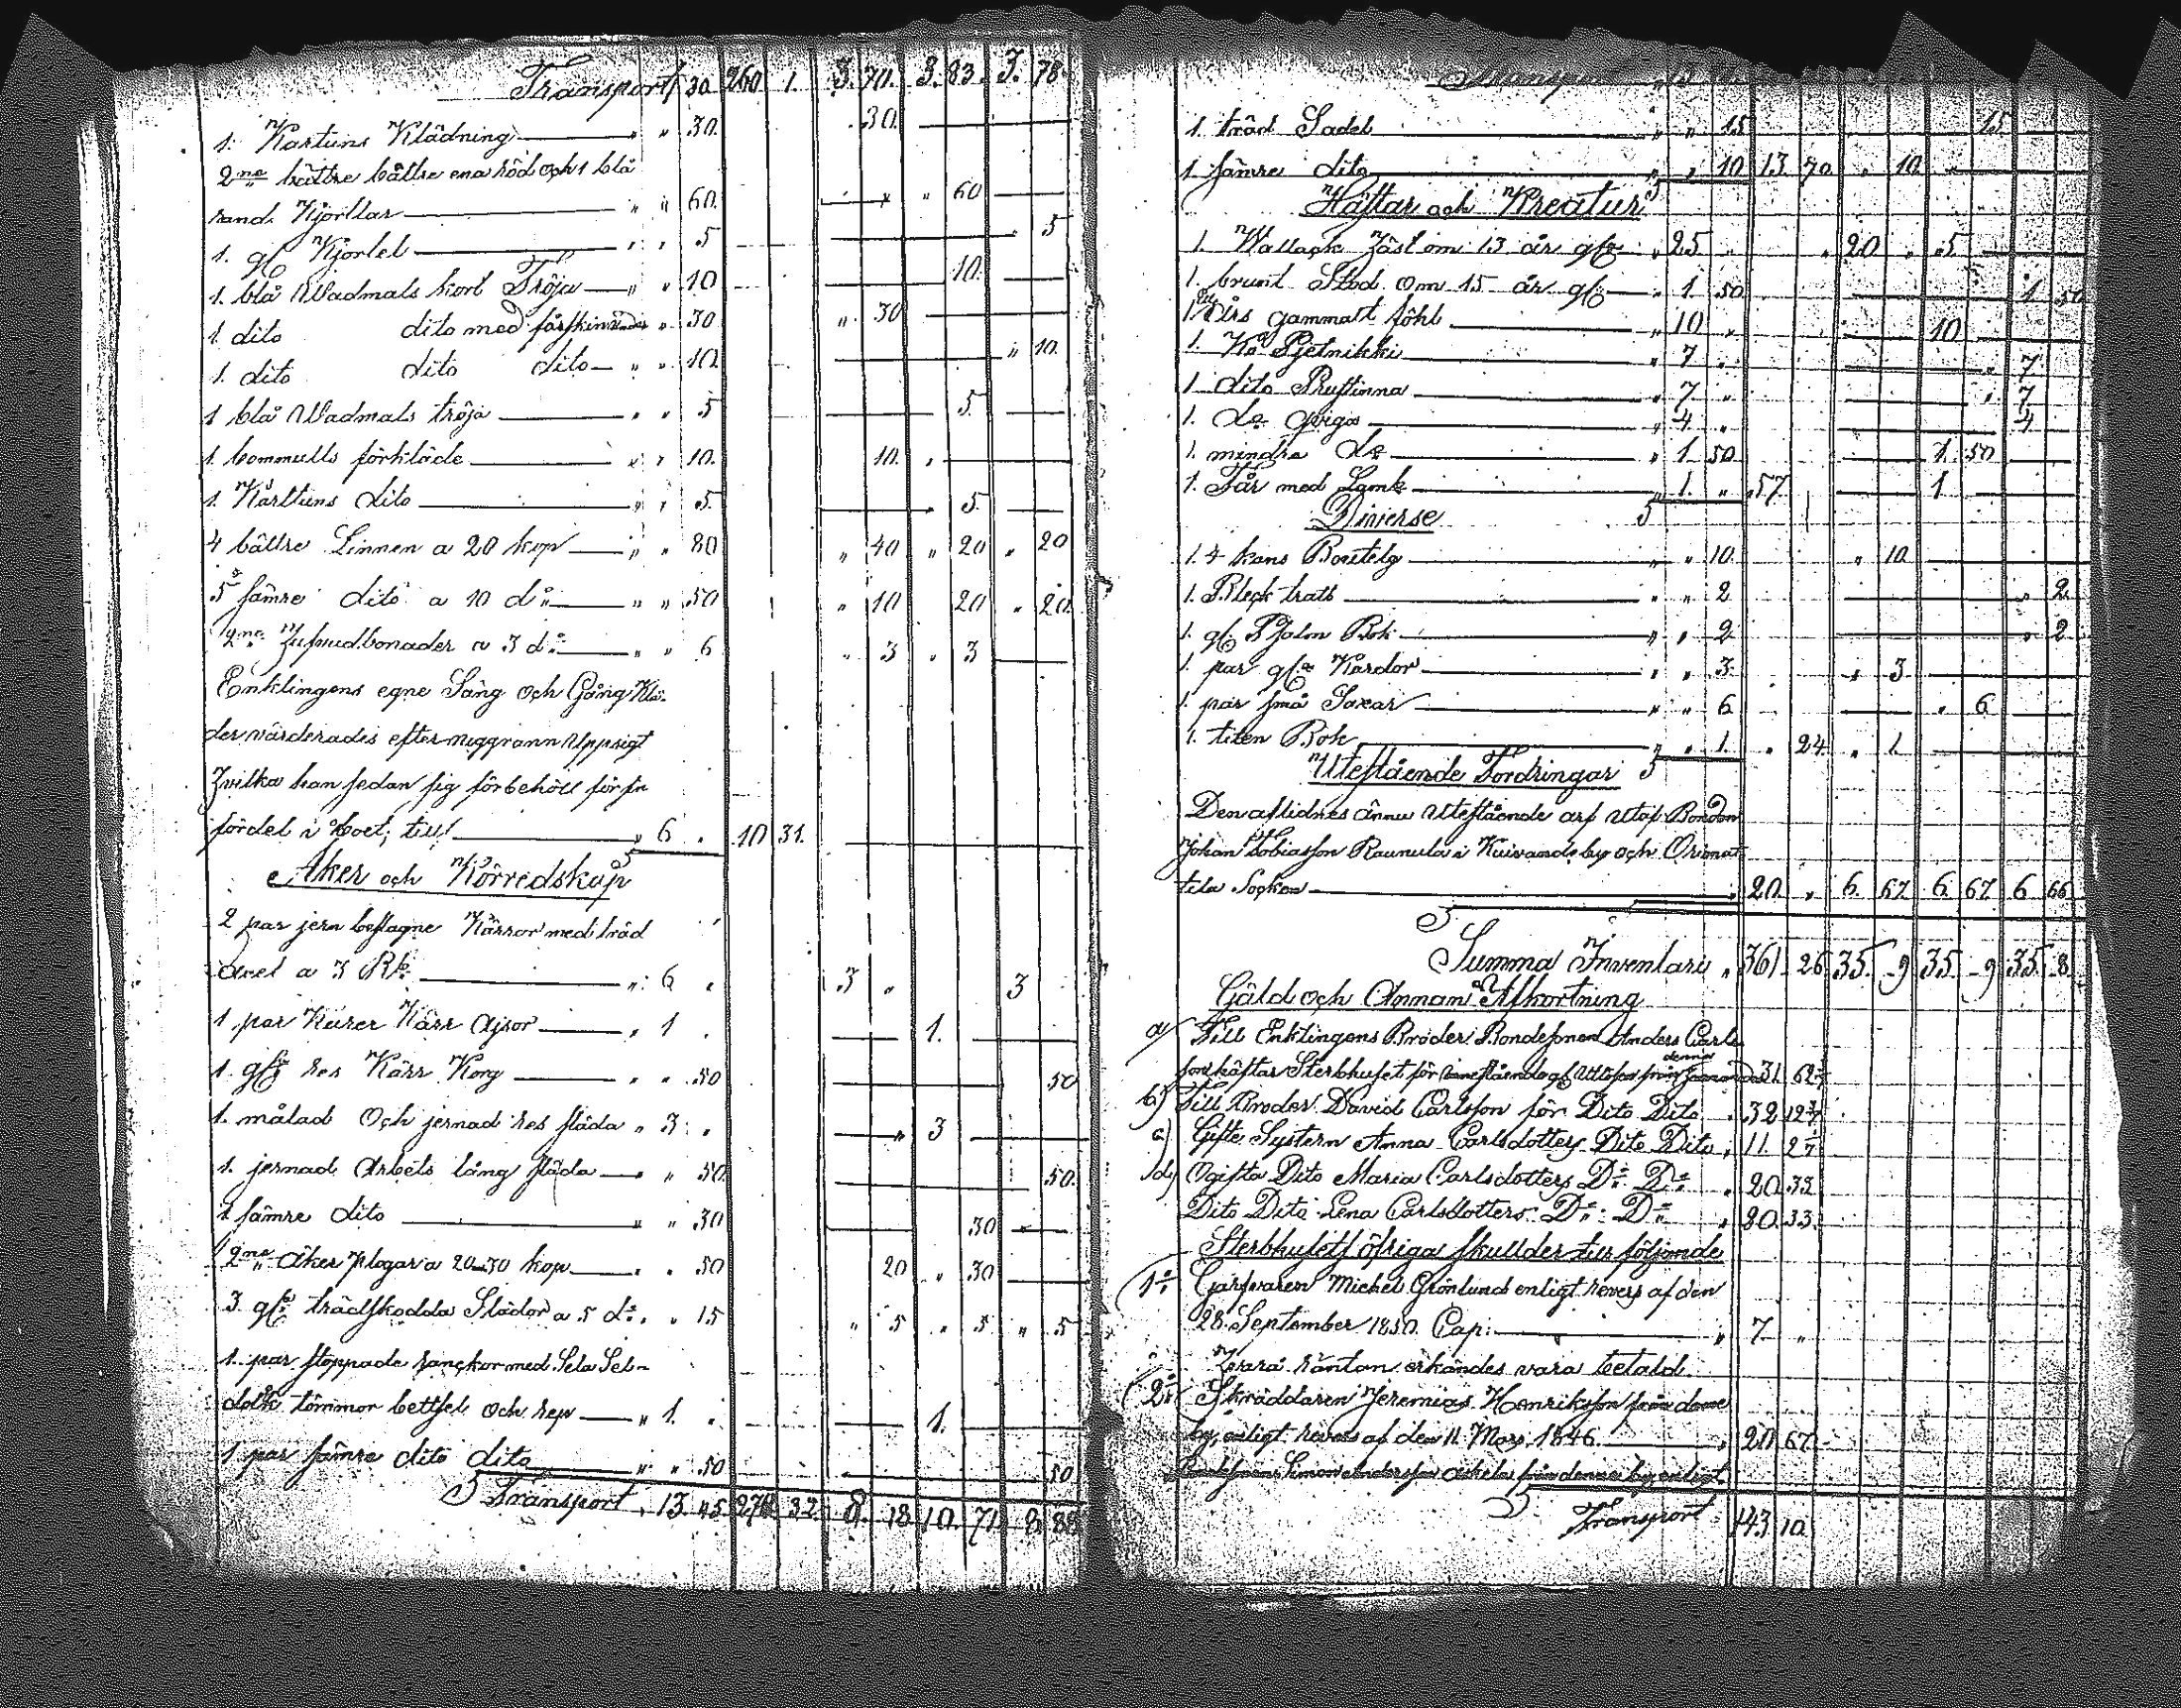 Transport 1 30 260 1. 3. 70. 3. 83. 3. 78
1. Kartuns Klädning " " 30. 30.
2ne bättre bättre ena röd och 1 blå
rand. Kjortlar " " 60. " 60
1. gl Kjortel " " 5 5
1. blå Wadmals kort Tröja " " 10 10.
1. dito dito med fårskin under " 30 " 30
1. dito dito dito " " 10 " 10.
1 blå Wadmals tröja " " 5 5.
1. bommulls förkläde " " 10. 10. "
1. Kårttuns dito " " 5. " 5.
4 bättre Linnen a 20 kop " " 80 " 40 " 20 " 20
5 sämre dito a 10 do " " 50 " 10 20 " 20
2ne Hufvudbonader a 3 do " " 6 " 3 " 3
Enklingens egne Säng och Gång Klä-
der värderades efter noggrann Uppsigt
Hvilka han sedan sig förbehöll för sin
fördel i boet, till " 6 " 10 31.
Åker och Körredskap
2 par jern beslagne Kärror med träd
axel a 3 Rb. " 6 " 3 " 3
1 par Kärr " 1 . 1.
1 gl res Kärr Korg " " 50 50
1. målad Och jernad res släda " 3 " " 3
1. jernad Arbets lång släda " " 50 50.
1 sämre dito " " 30 30 "
2ne åker plogar a 20-30 kop " " 50 20 " 30
3 gl trädskodda Slädor a 5 do " " 15 " 5 " 5 " 5
1. par stoppade ranckor med Sela Sel-
dolk tömmar bettsel och rep " 1. " 1.
1 par sämre dito dito " " 50 50
Transport " 13 45 270 32 8. 18 10. 71 8 88
Transport
1. träd Sadel " " 15 15
1. sämre dito " " 10 13 70 " 10
Hästar och Kreatur
1. Wallack Häst om 13 år gl " 25 " " 20 " 5
1. brunt Stod om 15 år gl " 1 50 1 50
1 Års gammalt föhl " 10 " 10
1. Ko Pjetnikki " 7 " " 7
1 dito Mustinna " 7 " " 7
1. Do qviga " 4 " 4
1. mindre do " 1 50 1. 50
1. Får med Lamb " 1. " 57 1
Diverse
1. 4 kans Boutelg " " 10 " 10
1. Bleck tratt " " 2 " 2
1. gl Psalm Bok " " 2 " 2
1. par gla Kardor " " 3 " 3
1. par små Saxar " " 6 " 6
1. liten Bok " " 1. " 24 " 1
Utestående Fordringar
Den aflidnes ännu Utestående arf utaf Bonden
Johan Tobiasson Raunula i Kuivandoby och Orimat
tila Sockon " 20 " 6. 67 6. 67 6 66
Summa Inventarii " 361 26 35. 9 35. 9 35. 8
Gäld och Annan Afkortning
a) Till Enklingens Broder Bondesonen Anders Carls
son häftar Sterbhuset för 31 62
b) Till Broder David Carlsson för Dito Dito " 32 12
c) Gifte Systern Anna Carlsdotters Dito Dito " 11. 2
d) Ogifta Dito Maria Carlsdotters Do Do " 20 33
Dito Dito Lena Carlsdotters Do Do " 20 33.
Sterbhusets öfriga skullder till följande
1o Garfvaren Michel Grönlund enligt revers af den
28 September 1850. Cap: " 7 "
Hvara räntan erkändes vara betald.
2o Skräddaren Jeremias Henriksson från denne
by, enligt revers af den 11 Mars 1846 " 20 67
Simon Andersson från denna by enligt
Transport 143 10